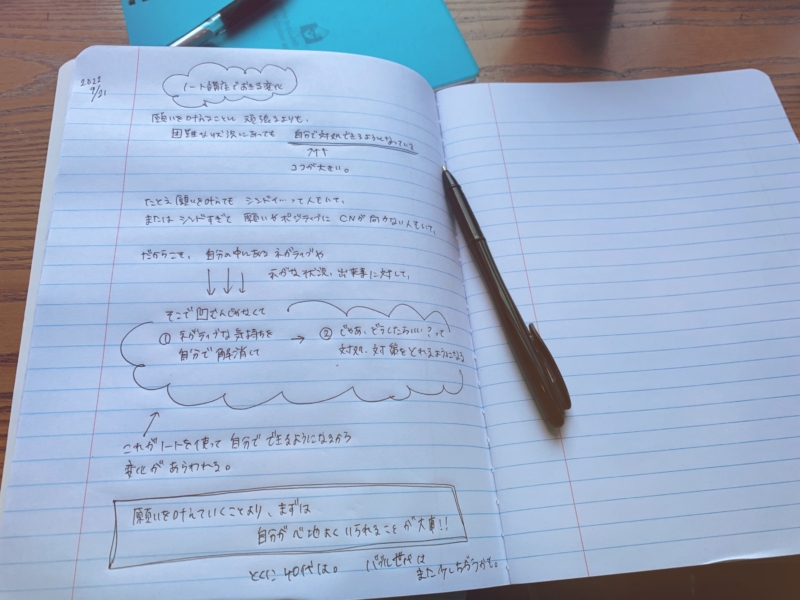 2022
9/21
ノート講座でおきる変化
願いを叶えることに 頑張るよりも、
困難な状況にあっても 自分で対処できるようになっている
コチラ
コフが大きい。
たとえ願いを叶えても シンドイ って人もいて、
または シンドすぎて 願いやポジティブに CNが向かない人もいて、
だからこそ、自分の中にある ネガティブや
ネガな状況、出来事に対して、
そこで凹むんじゃなくて
① ネガティブな気持ちを → ② じゃあ、どうしたらいい?って
自分で解消して 対処、対策をとれるようになる
これがノートを使って自分で できるようになるから
変化があらわれる。
願いを叶えていくことより、まずは
自分が心地よくいられることが大事!!
とくに40代は。 バブル世代は
また少しちがうかも。